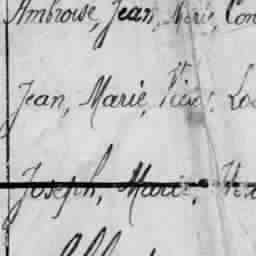 Ambroise, Jean, Marie, Con
Jean, Marie,
Joseph, Marie,